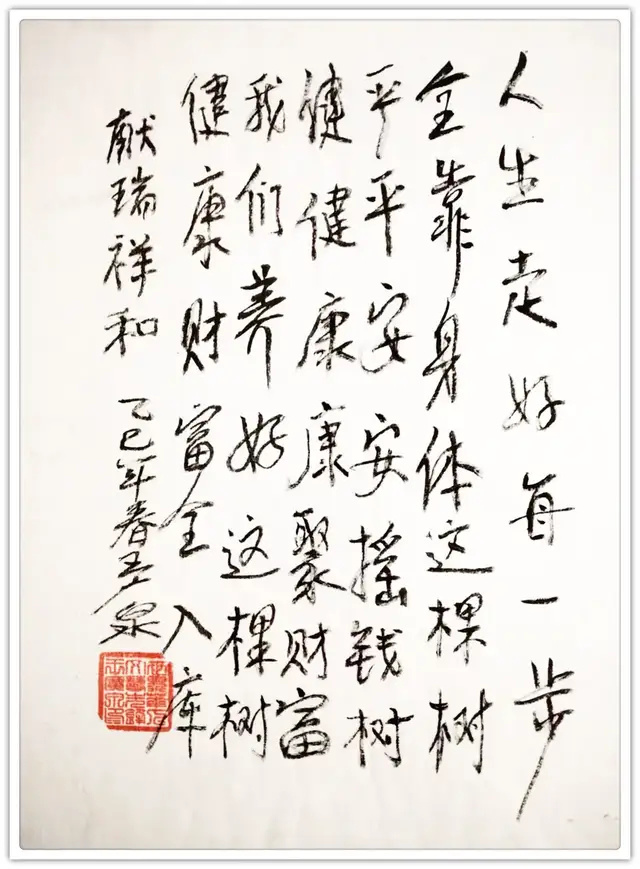 人生走好每一步
全靠身体这棵树
平平安安摇钱树
健健康康聚财富
我们养好这棵树
健康财富全入库
献瑞祥和 乙巳年春